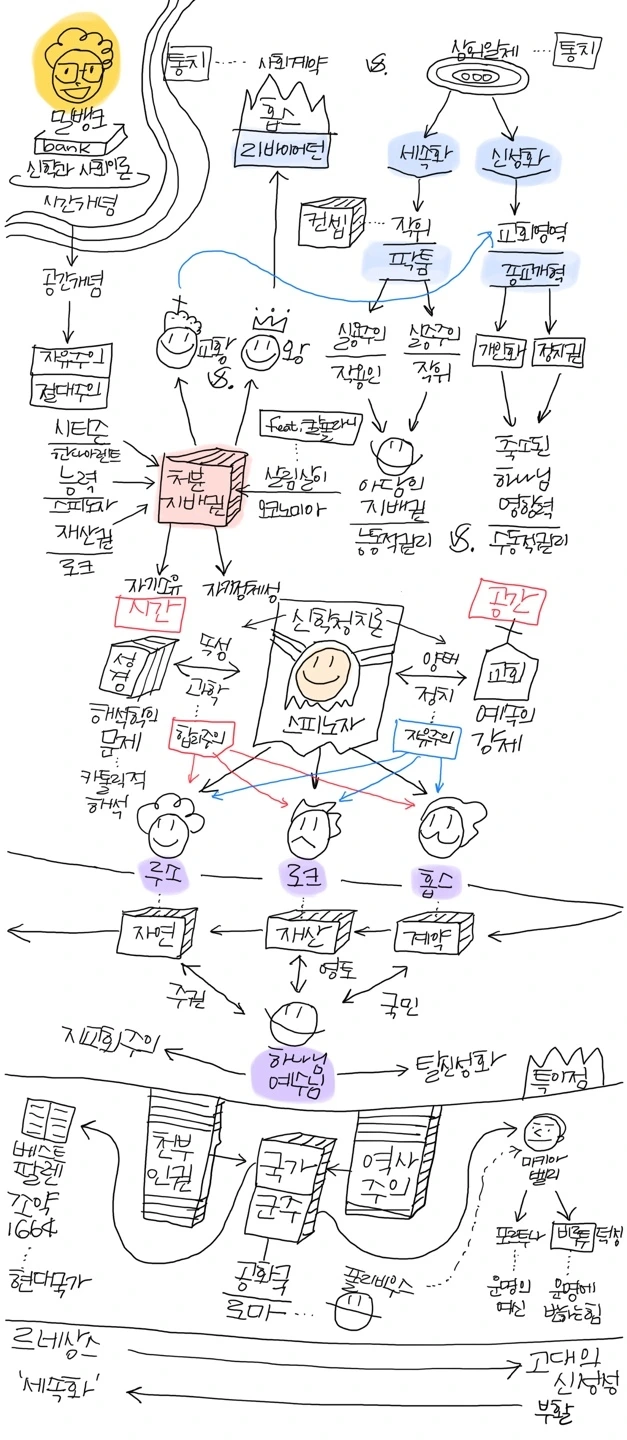 밀뱅크
bank
신학과 사회이론
시간개념
공간개념
자유주의
절대주의
시티즌
한나아렌트
능력
스피노자
재산권
로크
통치
사회계약
vs.
삼위일체
통치
홉스
리바이어던
세속화
신성화
컨셉
작위
팍툼
교회영역
종교개혁
교황
vs.
왕
실용주의
작용인
실증주의
작위
개인화
정치권
feat. 쿨풀라니
살림살이
오코노미아
처분
지배권
아담의
지배권
능동적권리
vs.
축소된
하나님
영향력
수동적권리
자기소유
자기정체성
시간
공간
성경
해석학의
문제
카톨릭적
해석
속성
과학
합리주의
신학정치론
스피노자
양태
정치
자유주의
교회
예속의
강제
루소
로크
홉스
자연
재산
계약
주권
영토
국민
하나님
예수님
지교회주의
탈신성화
특이점
베스트
팔렌
조약
1664
현대국가
천부
인권
국가
군주
역사
주의
공화국
로마
폴리비우스
마키아
벨리
포르투나
운명의
여신
비루투 덕성
운명에
반하는힘
르네상스
'세속화'
고대의
신정성
부활